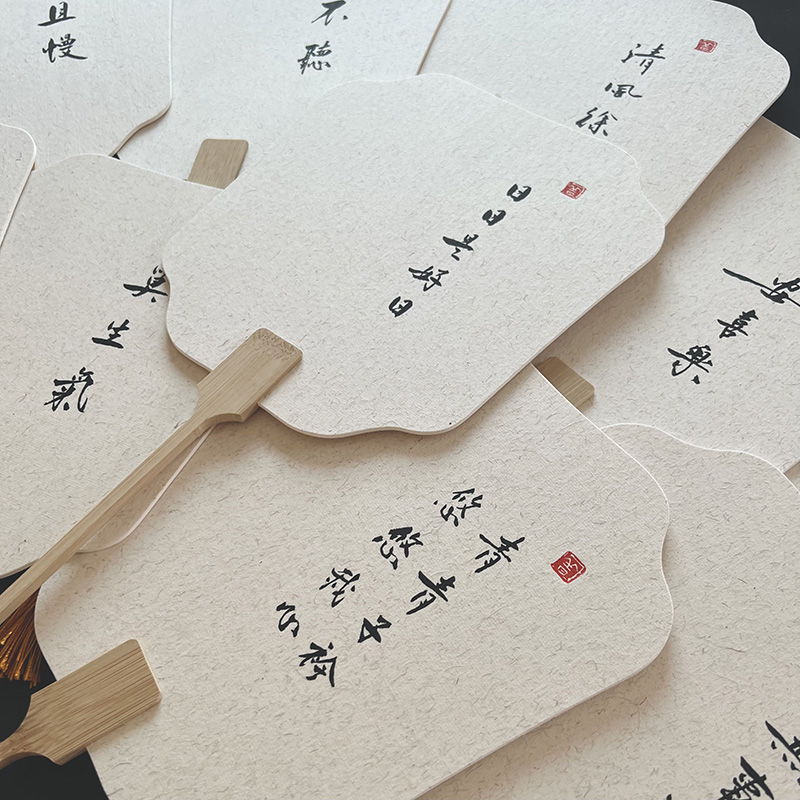 且慢
不聽
清風徐
日日是好日
莫生氣
喜樂
青青子衿
悠悠我心